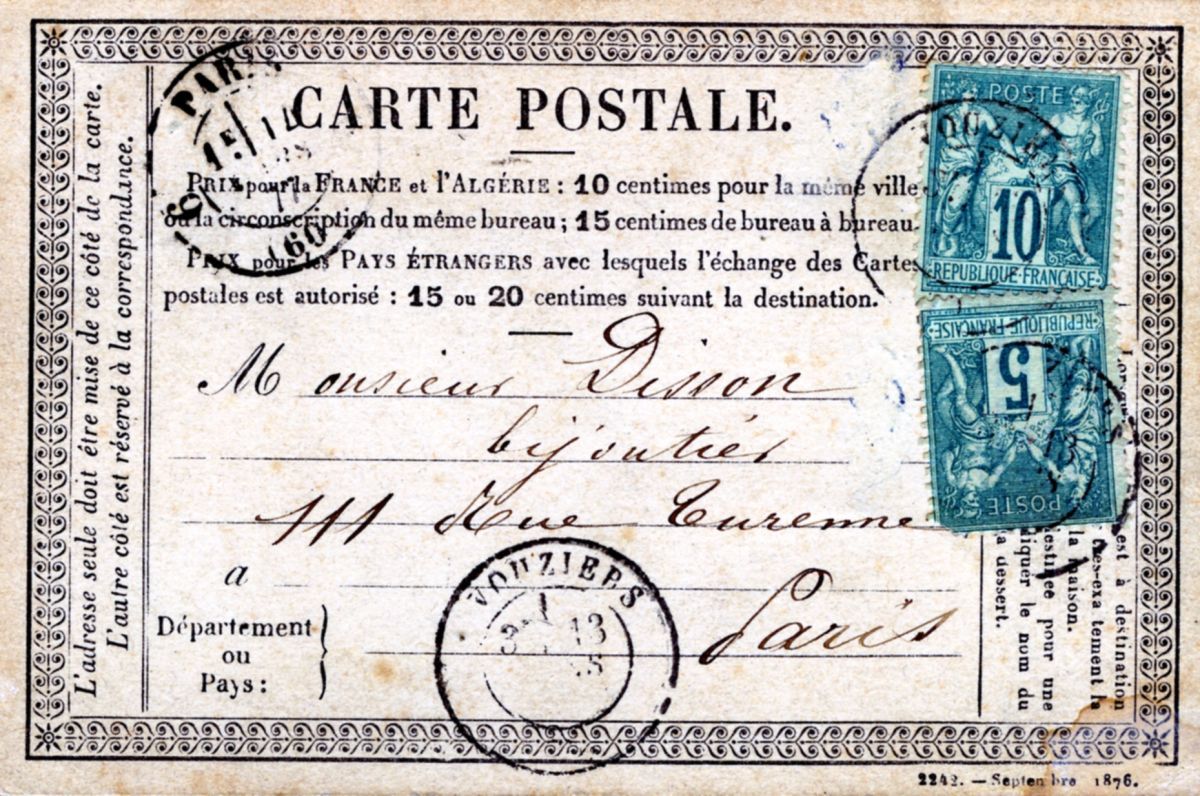 CARTE POSTALE.
PRIX pour la FRANCE et l'ALGÉRIE : 10 centimes pour la même ville
ou la circonscription du même bureau ; 15 centimes de bureau à bureau.
PRIX pour les PAYS ÉTRANGERS avec lesquels l'échange des Cartes
postales est autorisé : 15 ou 20 centimes suivant la destination.
Monsieur Disson
bijoutier
111 Rue Turenne
a Paris
Département
ou
Pays :
L'adresse seule doit être mise de ce côté de la carte.
L'autre côté est réservé à la correspondance.
PARIS
15
60
POSTE
10
REPUBLIQUE FRANÇAISE
REPUBLIQUE FRANÇAISE
5
POSTE
VOUZIERS
13
VOUZIERS
est à destination
très-exactement la
la maison.
destinée pour une
diquer le nom du
la dessert.
2242. — Septembre 1876.